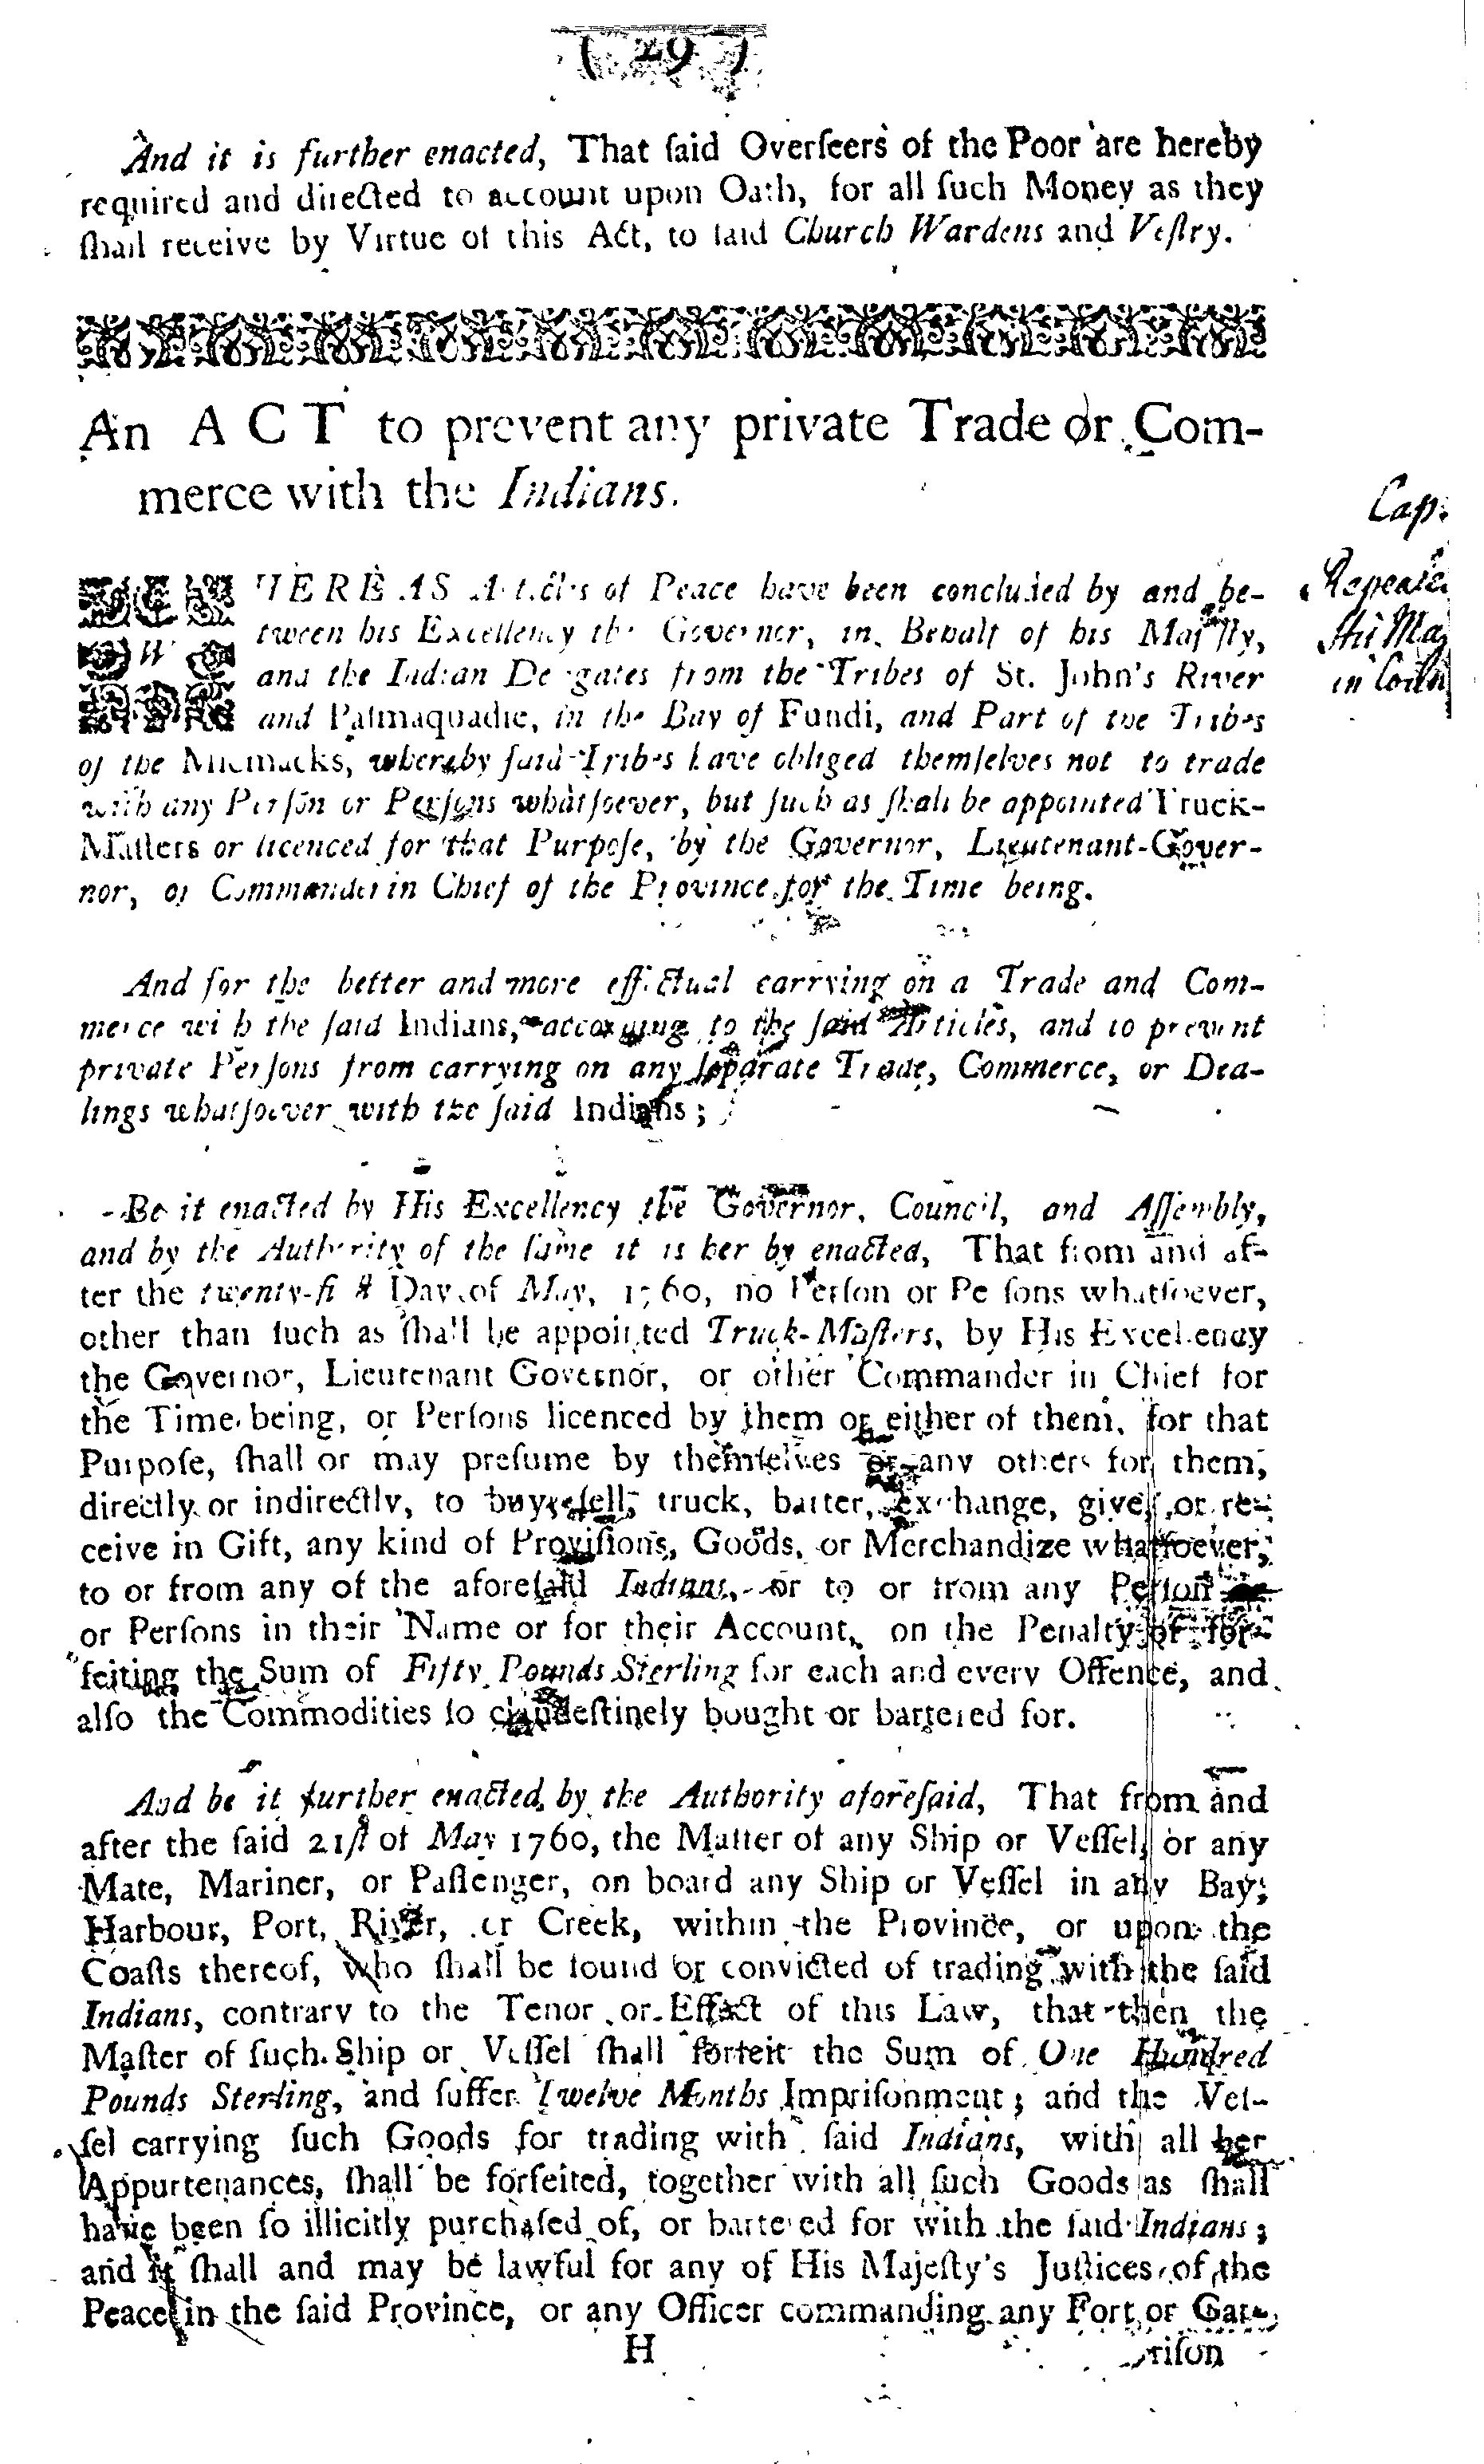 ( 29 )
And it is further enacted, That ſaid Overſeers of the Poor are hereby
required and directed to account upon Oath, for all ſuch Money as they
ſhall receive by Virtue of this Act, to ſaid Church Wardens and Veſtry.
An ACT to prevent any private Trade or Com-
merce with the Indians.
WHEREAS Articles of Peace have been concluded by and be-
tween his Excellency the Governor, in Behalf of his Majeſty,
and the Indian Delegates from the Tribes of St. John's River
and Paſmaquadie, in the Bay of Fundi, and Part of the Tribes
of the Micmacks, whereby ſaid Tribes have obliged themſelves not to trade
with any Perſon or Perſons whatſoever, but ſuch as ſhall be appointed Truck-
Maſters or licenced for that Purpoſe, by the Governor, Lieutenant-Gover-
nor, or Commander in Chief of the Province for the Time being.
And for the better and more effectual carrying on a Trade and Com-
merce with the ſaid Indians, according to the ſaid Articles, and to prevent
private Perſons from carrying on any ſeparate Trade, Commerce, or Dea-
lings whatſoever with the ſaid Indians;
Be it enacted by His Excellency the Governor, Council, and Aſſembly,
and by the Authority of the ſame it is hereby enacted, That from and af-
ter the twenty-firſt Day of May, 1760, no Perſon or Perſons whatſoever,
other than ſuch as ſhall be appointed Truck-Maſters, by His Excellency
the Governor, Lieutenant Governor, or other Commander in Chief for
the Time being, or Perſons licenced by them or either of them, for that
Purpoſe, ſhall or may preſume by themſelves or any others for them,
directly or indirectly, to buy, ſell, truck, barter, exchange, give, or re-
ceive in Gift, any kind of Proviſions, Goods, or Merchandize whatſoever,
to or from any of the aforeſaid Indians, or to or from any Perſon
or Perſons in their Name or for their Account, on the Penalty of for-
feiting the Sum of Fifty Pounds Sterling for each and every Offence, and
alſo the Commodities ſo clandeſtinely bought or bartered for.
And be it further enacted by the Authority aforeſaid, That from and
after the ſaid 21ſt of May 1760, the Maſter of any Ship or Veſſel, or any
Mate, Mariner, or Paſſenger, on board any Ship or Veſſel in any Bay,
Harbour, Port, River, or Creek, within the Province, or upon the
Coaſts thereof, who ſhall be found or convicted of trading with the ſaid
Indians, contrary to the Tenor or Effect of this Law, that then the
Maſter of ſuch Ship or Veſſel ſhall forfeit the Sum of One Hundred
Pounds Sterling, and ſuffer Twelve Months Impriſonment; and the Veſ-
ſel carrying ſuch Goods for trading with ſaid Indians, with all her
Appurtenances, ſhall be forfeited, together with all ſuch Goods as ſhall
have been ſo illicitly purchaſed of, or bartered for with the ſaid Indians;
and it ſhall and may be lawful for any of His Majeſty's Juſtices of the
Peace in the ſaid Province, or any Officer commanding any Fort or Gar-
H
riſon
Cap.
His Ma
in